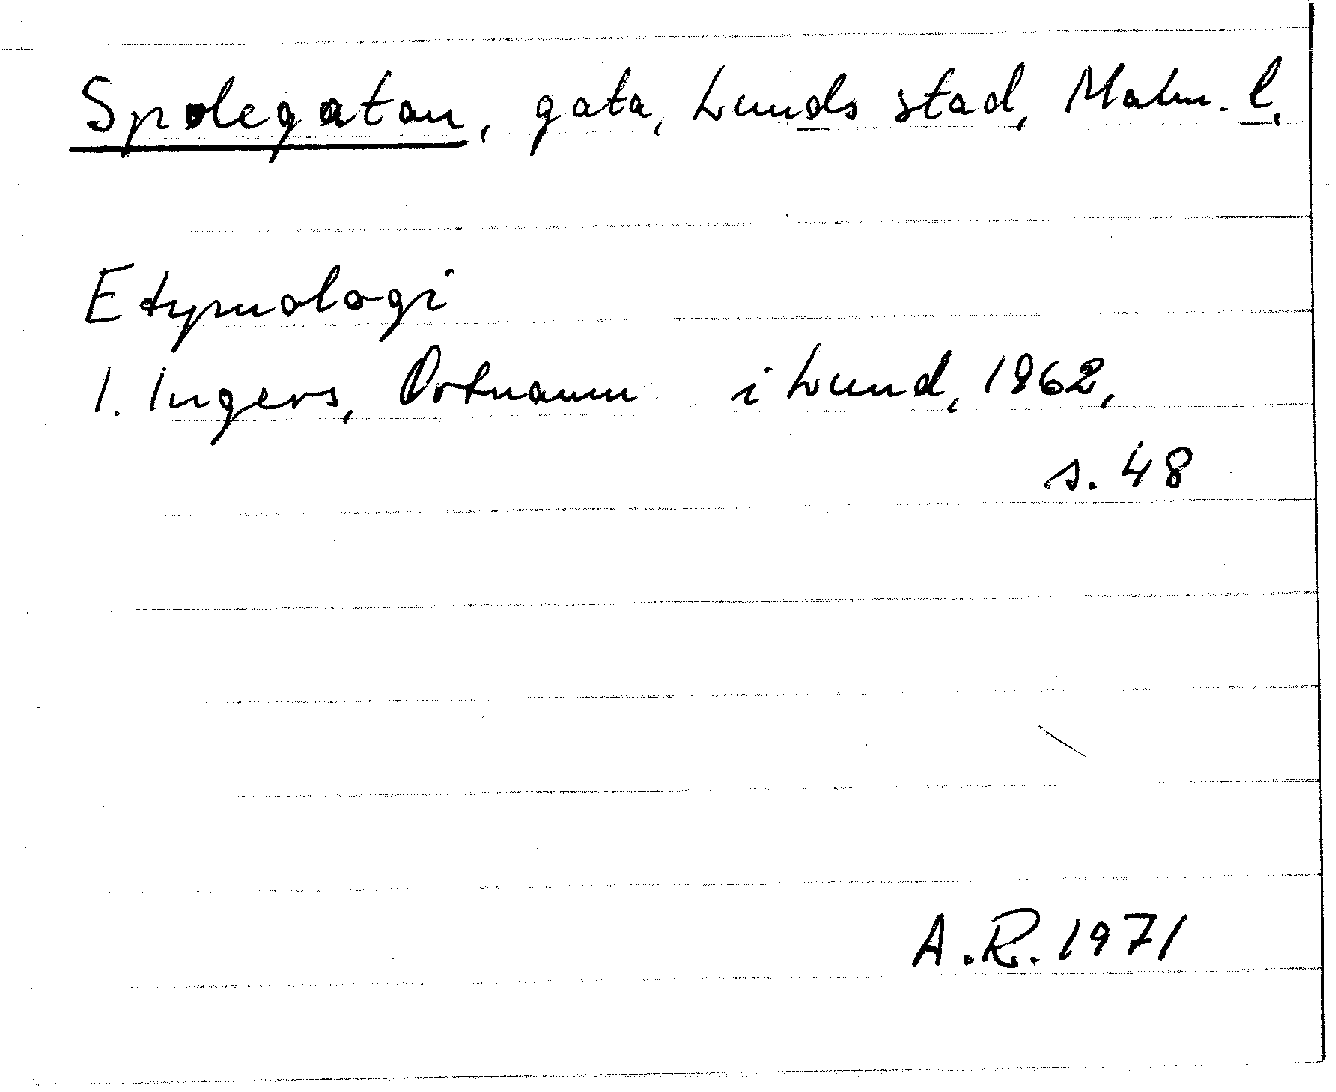 Spolegatan, gata, Lunds stad, Malm. l.
Etymologi
I. Ingers, Ortnamn i Lund, 1962,
s. 48
A.R. 1971